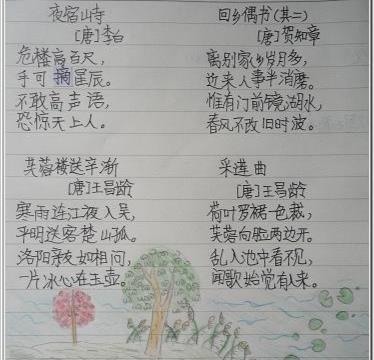 夜宿山寺
[唐]李白
危楼高百尺，
手可摘星辰。
不敢高声语，
恐惊天上人。
回乡偶书（其二）
[唐]贺知章
离别家乡岁月多，
近来人事半消磨。
惟有门前镜湖水，
春风不改旧时波。
芙蓉楼送辛渐
[唐]王昌龄
寒雨连江夜入吴，
平明送客楚山孤。
洛阳亲友如相问，
一片冰心在玉壶。
采莲曲
[唐]王昌龄
荷叶罗裙一色裁，
芙蓉向脸两边开。
乱入池中看不见，
闻歌始觉有人来。